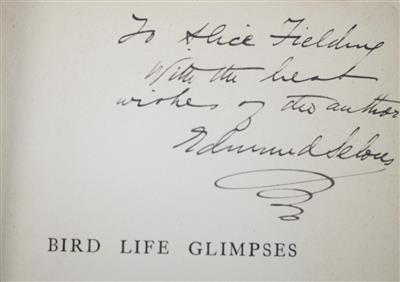 To Alice Fielding
With the best
wishes of the author
Edmund Selous
BIRD LIFE GLIMPSES